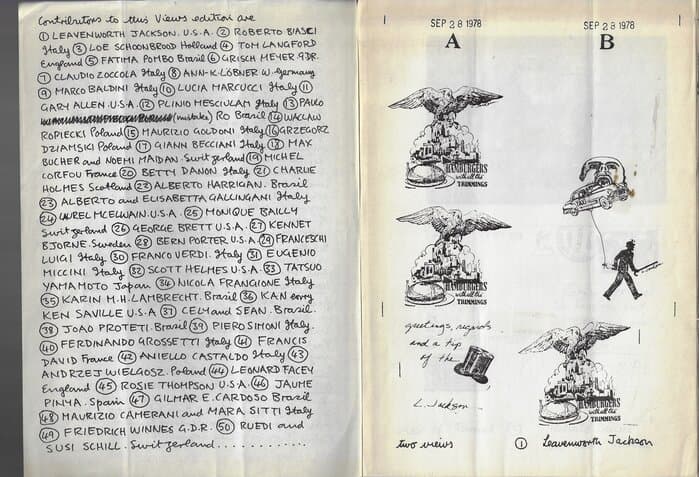 Contributors to this Views edition are
① LEAVENWORTH JACKSON. U.S.A. ② ROBERTO BIASCI
Italy ③ LOE SCHOONBROOD Holland ④ TOM LANGFORD
England ⑤ FATIMA POMBO Brazil ⑥ GRISCH MEYER GDR.
⑦ CLAUDIO ZOCCOLA Italy ⑧ ANN-K. LÖBNER W. Germany
⑨ MARCO BALDINI Italy ⑩ LUCIA MARCUCCI Italy ⑪
GARY ALLEN U.S.A. ⑫ PLINIO MESCIULAM Italy ⑬ PAULO
(mistake) RO Brazil ⑭ WACLAW
ROPIECKI Poland ⑮ MAURIZIO GOLDONI Italy ⑯ GRZEGORZ
DZIAMSKI Poland ⑰ GIANN BECCIANI Italy ⑱ MAX
BUCHER and NOEMI MAIDAN. Switzerland ⑲ MICHEL
CORFOU France ⑳ BETTY DANON Italy ㉑ CHARLIE
HOLMES Scotland ㉓ ALBERTO HARRIGAN. Brazil
㉓ ALBERTO and ELISABETTA GALLINGANI Italy
㉔ LAUREL MCELWAIN. U.S.A. ㉕ MONIQUE BAILLY
Switzerland ㉖ GEORGE BRETT U.S.A. ㉗ KENNET
BJORNE. Sweden ㉘ BERN PORTER U.S.A ㉙ FRANCESCHI
LUIGI Italy ㉚ FRANCO VERDI. Italy ㉛ EUGENIO
MICCINI Italy ㉜ SCOTT HELMES U.S.A. ㉝ TATSUO
YAMAMOTO Japan ㉞ NICOLA FRANGIONE Italy
㉟ KARIN M.H. LAMBRECHT. Brazil ㊱ KAN
KEN SAVILLE U.S.A ㊲ CELM and SEAN. Brazil.
㊳ JOAO PROTETI. Brazil ㊴ PIERO SIMONI Italy.
㊵ FERDINANDO GROSSETTI Italy ㊶ FRANCIS
DAVID France ㊷ ANIELLO CASTALDO Italy ㊸
ANDRZEJ WIELGOSZ. Poland ㊹ LEONARD FACEY
England ㊺ ROSIE THOMPSON U.S.A. ㊻ JAUME
PINYA. Spain ㊼ GILMAR E. CARDOSO Brazil
㊽ MAURIZIO CAMERANI and MARA SITTI Italy
㊾ FRIEDRICH WINNES G.D.R. ㊿ RUEDI and
SUSI SCHILL. Switzerland............
SEP 28 1978
A
SEP 28 1978
B
HAMBURGERS
with all the
TRIMMINGS
TAXI
HAMBURGERS
with all the
TRIMMINGS
greetings, regards
and a tip
of the
L. Jackson
HAMBURGERS
with all the
TRIMMINGS
two views ① Leavenworth Jackson